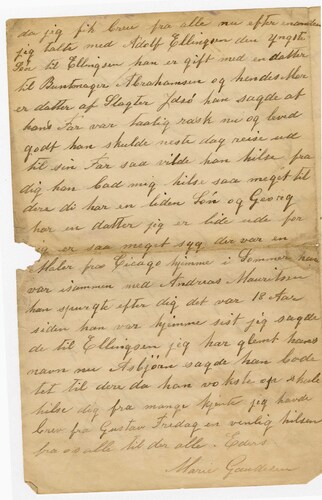 da jeg fik brev fra alle nu efter
jeg talte med Adolf Ellingsen den yngste
Søn til Ellingsen han er gift med en datter
til Buntmager Abrahamsen og hendes Mor
er datter af Slagter han sagde at
hans Far var taalig rask nu og levd
godt han skulde neste dag reise ud
til sin Far saa vilde han hilse fra
dig han bad mig hilse saa meget til
dere di har en liden Søn og Georg
har en datter jeg er lide ude for
jeg er saa meget syg der var en
Maler fra Cicago hjemme i Sommer han
var isammen med Andreas Mauritsen
han spurgte efter dig det var 18 Aar
siden han var hjemme sist jeg sagde
de til Ellingsen jeg har glemt hans
navn nu Asbjørn sagde han bode
tet til dere da han vokste op skule
hilse dig fra mange kjente jeg havde
brev fra Gustav Fredag en venlig hilsen
fra os alle til der alle. Eders
Marie